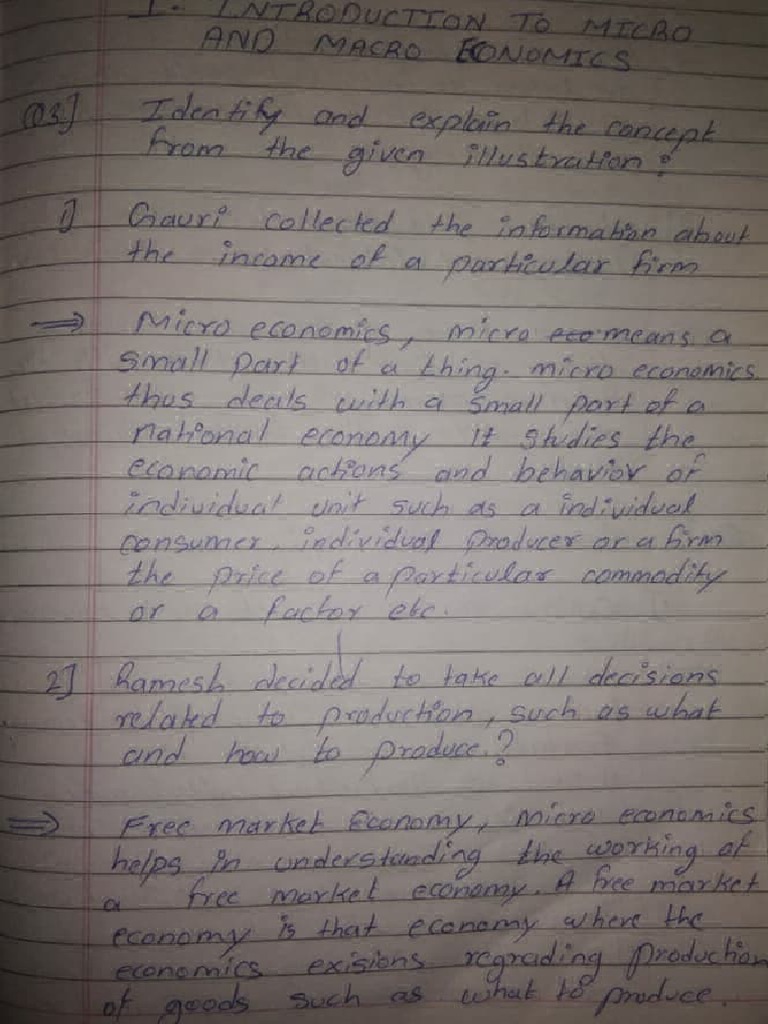 1. INTRODUCTION TO MICRO
AND MACRO ECONOMICS
Q3] Identify and explain the concept
from the given illustration :
1] Gauri collected the information about
the income of a particular firm
⇒ Micro economics, micro eco means a
small part of a thing. micro economics
thus deals with a small part of a
national economy It studies the
economic actions and behavior of
individual unit such as a individual
consumer, individual producer or a firm
the price of a particular commodity
or a factor etc.
2] Ramesh decided to take all decisions
related to production, such as what
and how to produce.?
⇒ Free market Economy, Micro economics
helps in understanding the working of
a free market economy. A free market
economy is that economy where the
economics exisions regrading production
of goods such as what to produce.